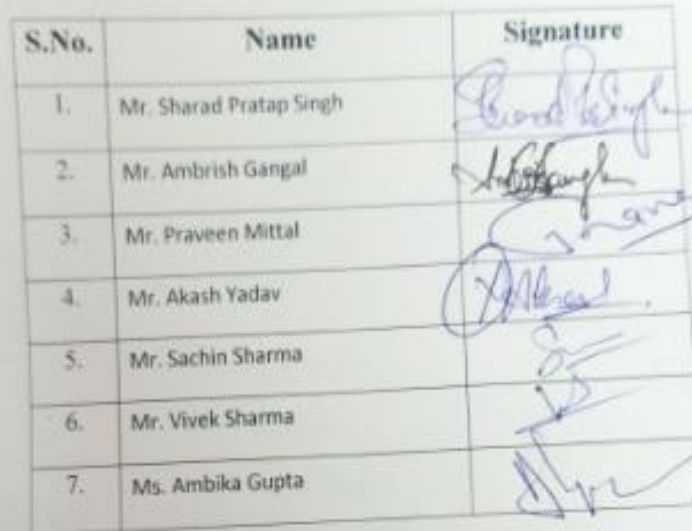 S.No. Name Signature
1. Mr. Sharad Pratap Singh
2. Mr. Ambrish Gangal
3. Mr. Praveen Mittal
4. Mr. Akash Yadav
5. Mr. Sachin Sharma
6. Mr. Vivek Sharma
7. Ms. Ambika Gupta